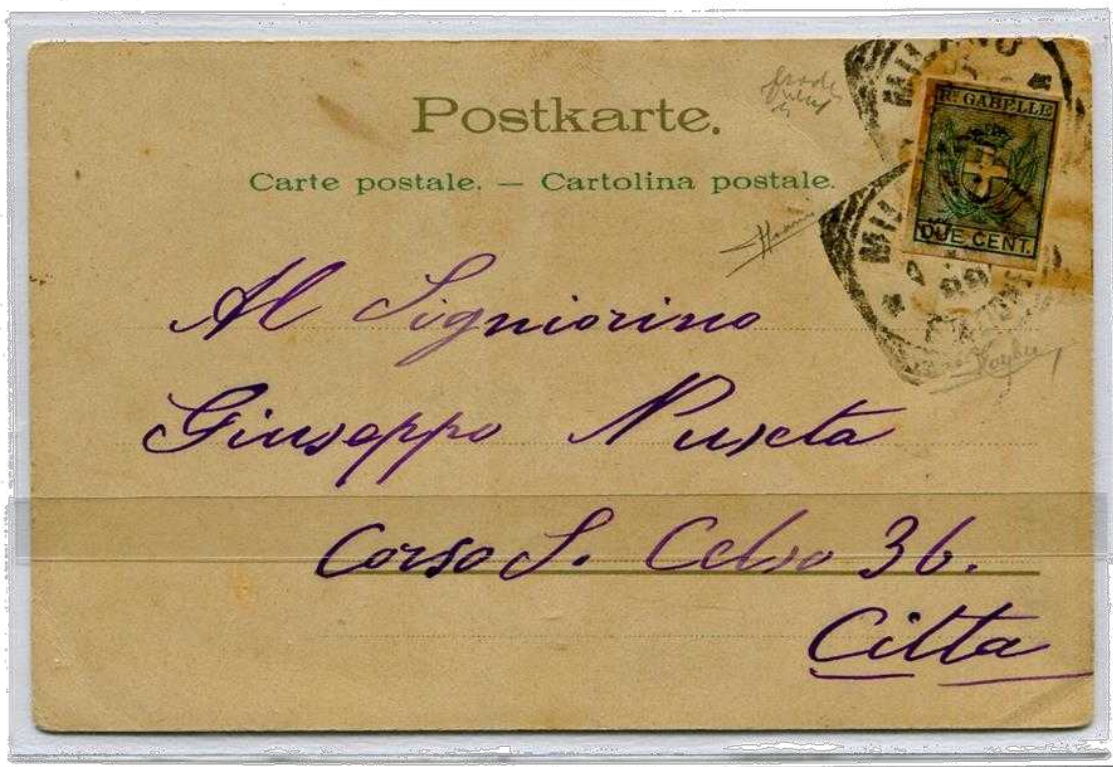 Postkarte.
Carte postale. — Cartolina postale.
MILANO
Re GABELLE
DUE CENT.
MIL
Al Signiorino
Giuseppo Nuxeta
Corso S. Celso 36.
Citta